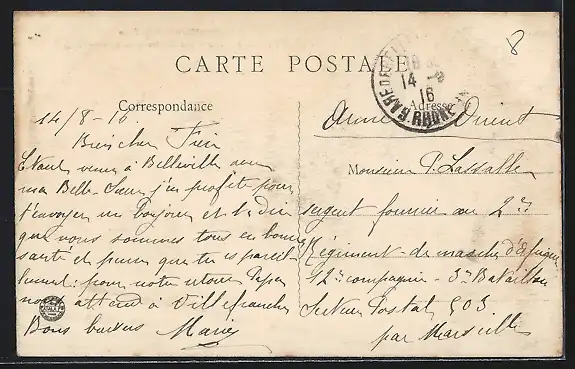 8
CARTE POSTALE
GARE DE BELLEVILLE
14 - 8
16
RHONE
Correspondance
Adresse
14/8-16
Armée Orient
Bien cher Frère
Etant venu à Belleville avec
ma Belle-Sœur j'en profite pour
t'envoyer un bonjour et te dire
que nous sommes tous en bonne
santé et pense que tu es pareil
lement; pour notre retour Pépé
nous attend à Villefranche
Bons baisers Marie
Monsieur P. Lassalle
sergent fourrier au 2e
Régiment - de marche d'Afrique
12e compagnie - 3e Bataillon
Secteur Postal 503
par Marseille